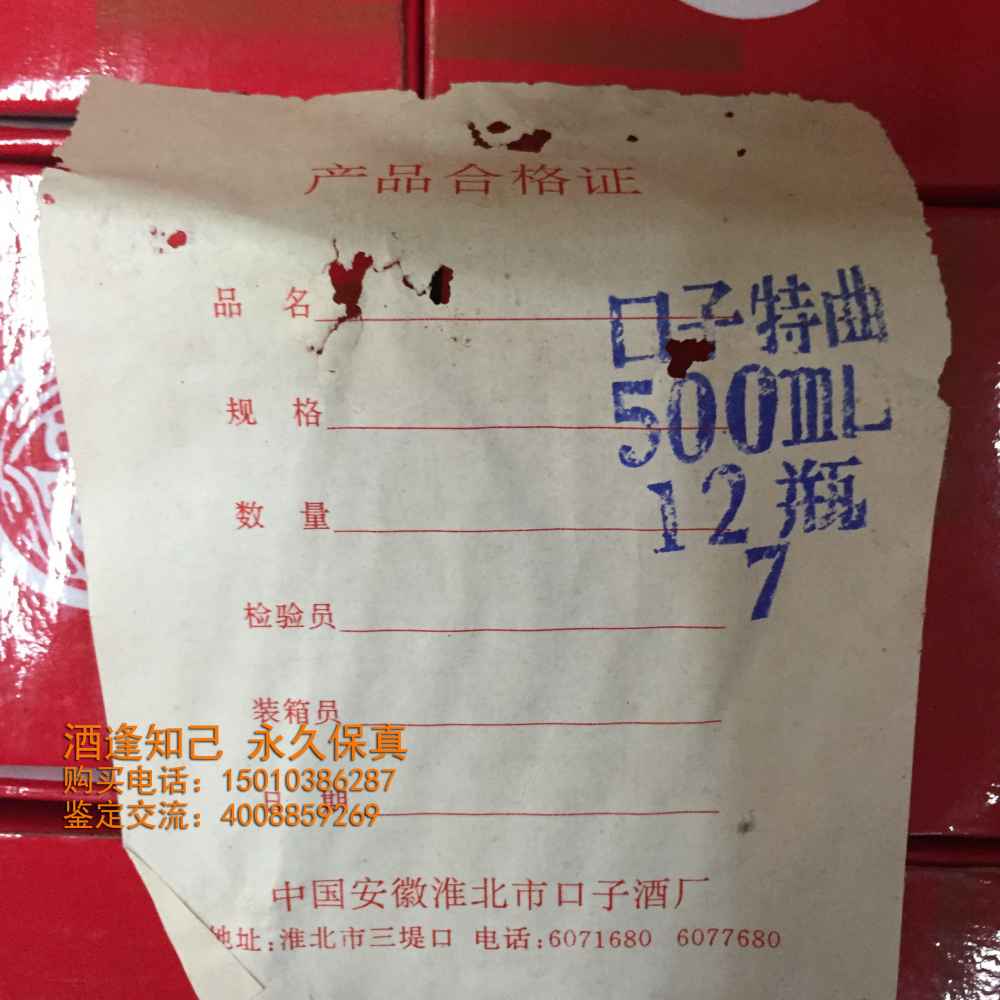 产品合格证
品 名
口子特曲
规 格
500mL
数 量
12瓶
7
检验员
装箱员
酒逢知己 永久保真
购买电话：15010386287
日 期
鉴定交流：4008859269
中国安徽淮北市口子酒厂
地址:淮北市三堤口 电话:6071680 6077680